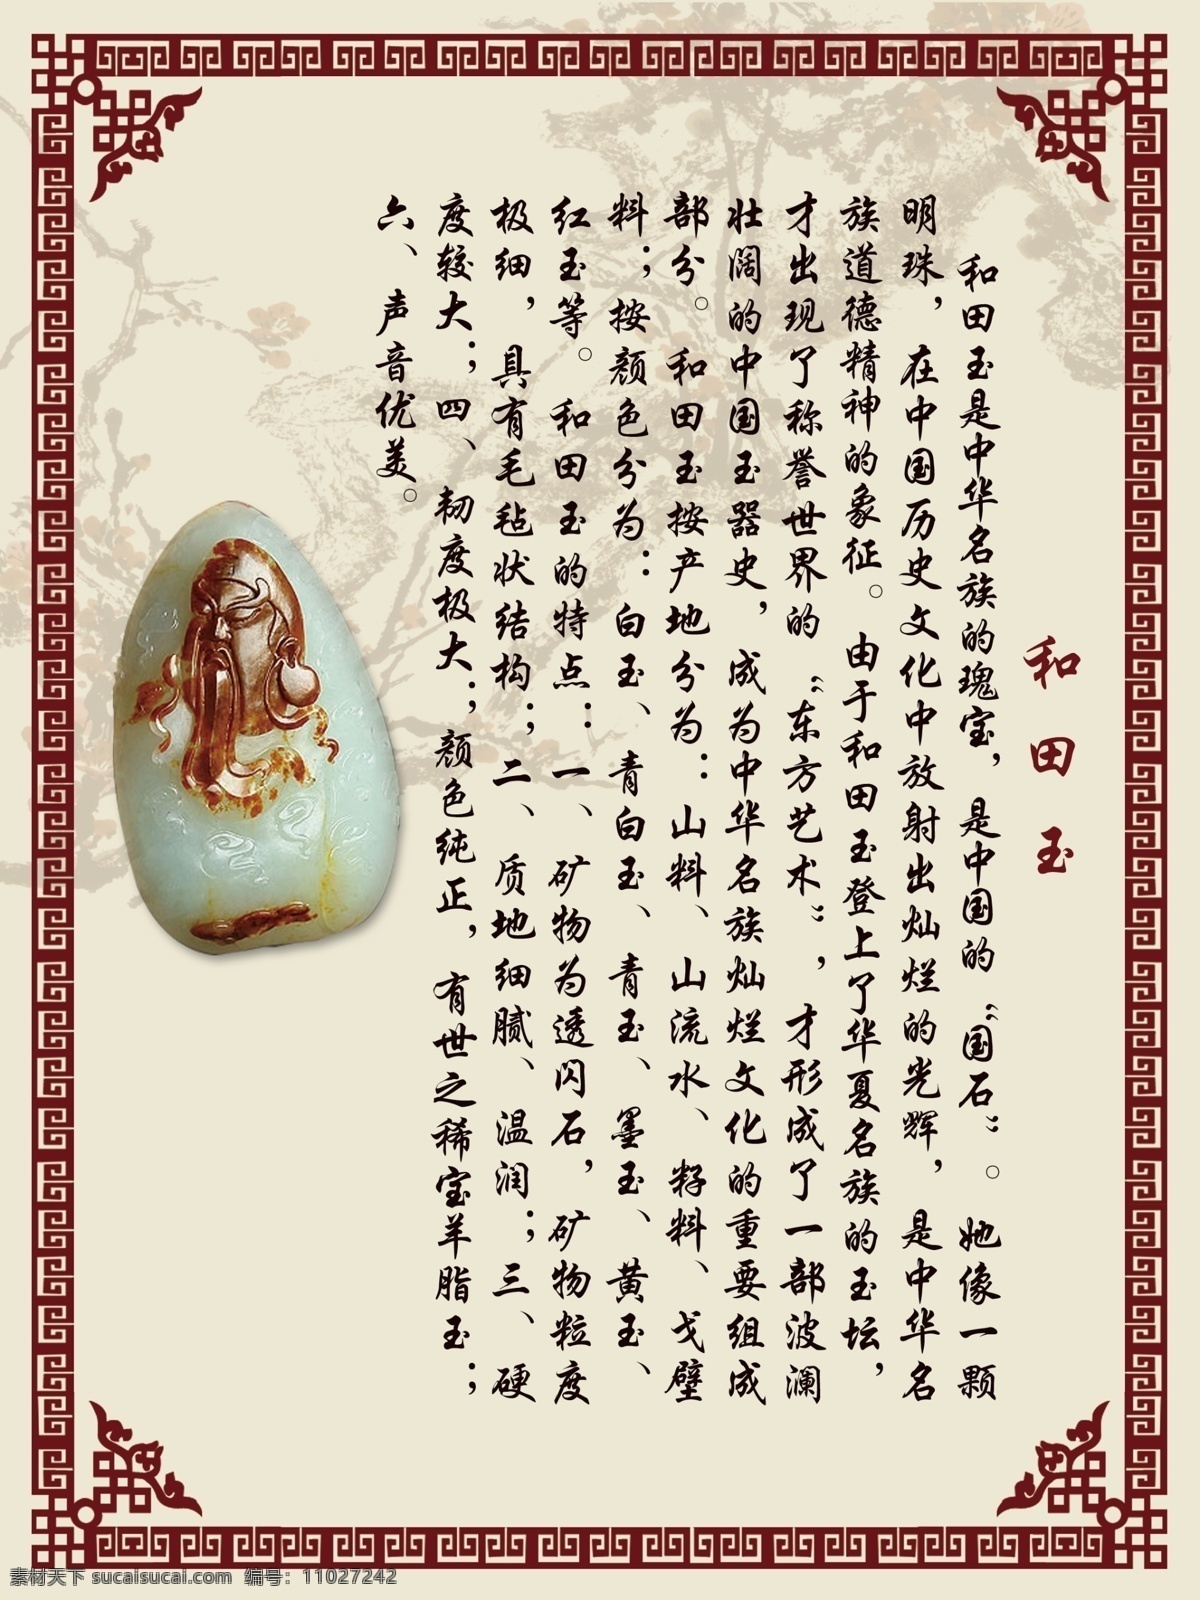 和田玉
和田玉是中华名族的瑰宝，是中国的“国石”。她像一颗
明珠，在中国历史文化中放射出灿烂的光辉，是中华名
族道德精神的象征。由于和田玉登上了华夏名族的玉坛，
才出现了称誉世界的“东方艺术”，才形成了一部波澜
壮阔的中国玉器史，成为中华名族灿烂文化的重要组成
部分。和田玉按产地分为：山料、山流水、籽料、戈壁
料；按颜色分为：白玉、青白玉、青玉、墨玉、黄玉、
红玉等。和田玉的特点：一、矿物为透闪石，矿物粒度
极细，具有毛毡状结构；二、质地细腻、温润；三、硬
度较大；四、韧度极大；颜色纯正，有世之稀宝羊脂玉；
六、声音优美。
素材天下 sucaisucai.com 编号：11027242